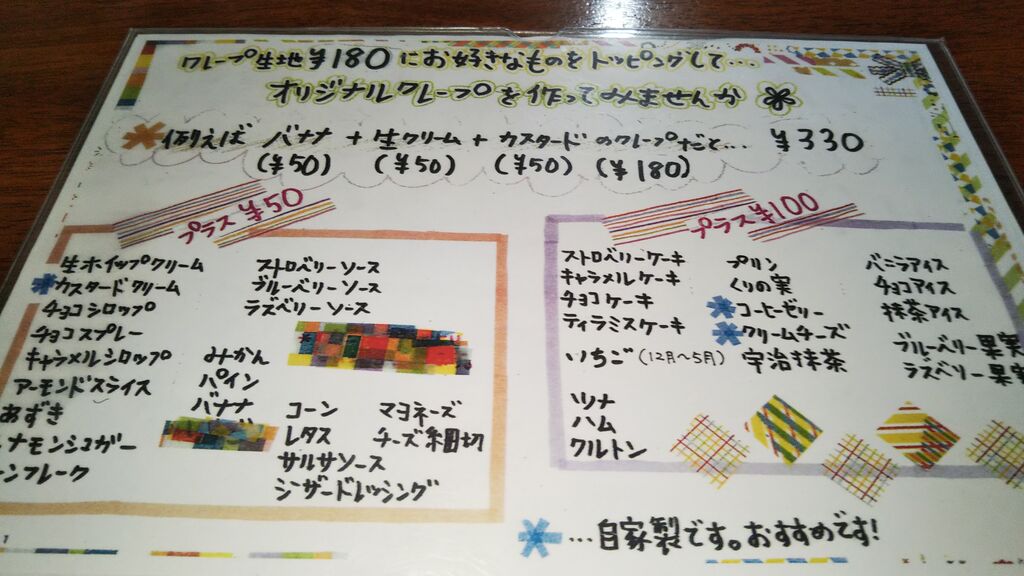 クレープ生地¥180にお好きなものをトッピングして...
オリジナルクレープを作ってみませんか
例えば バナナ + 生クリーム + カスタード のクレープだと... ¥330
(¥50) (¥50) (¥50) (¥180)
プラス ¥50
生ホイップクリーム
カスタードクリーム
チョコシロップ
チョコスプレー
キャラメルシロップ
アーモンドスライス
あずき
ナモンシュガー
ーンフレーク
ストロベリーソース
ブルーベリーソース
ラズベリーソース
みかん
パイン
バナナ
コーン
レタス
サルサソース
シーザードレッシング
マヨネーズ
チーズ細切
プラス ¥100
ストロベリーケーキ
キャラメルケーキ
チョコケーキ
ティラミスケーキ
いちご(12月〜5月)
ツナ
ハム
クルトン
プリン
くりの実
コーヒーゼリー
クリームチーズ
宇治抹茶
バニラアイス
チョコアイス
抹茶アイス
ブルーベリー果実
ラズベリー果実
...自家製です。おすすめです!